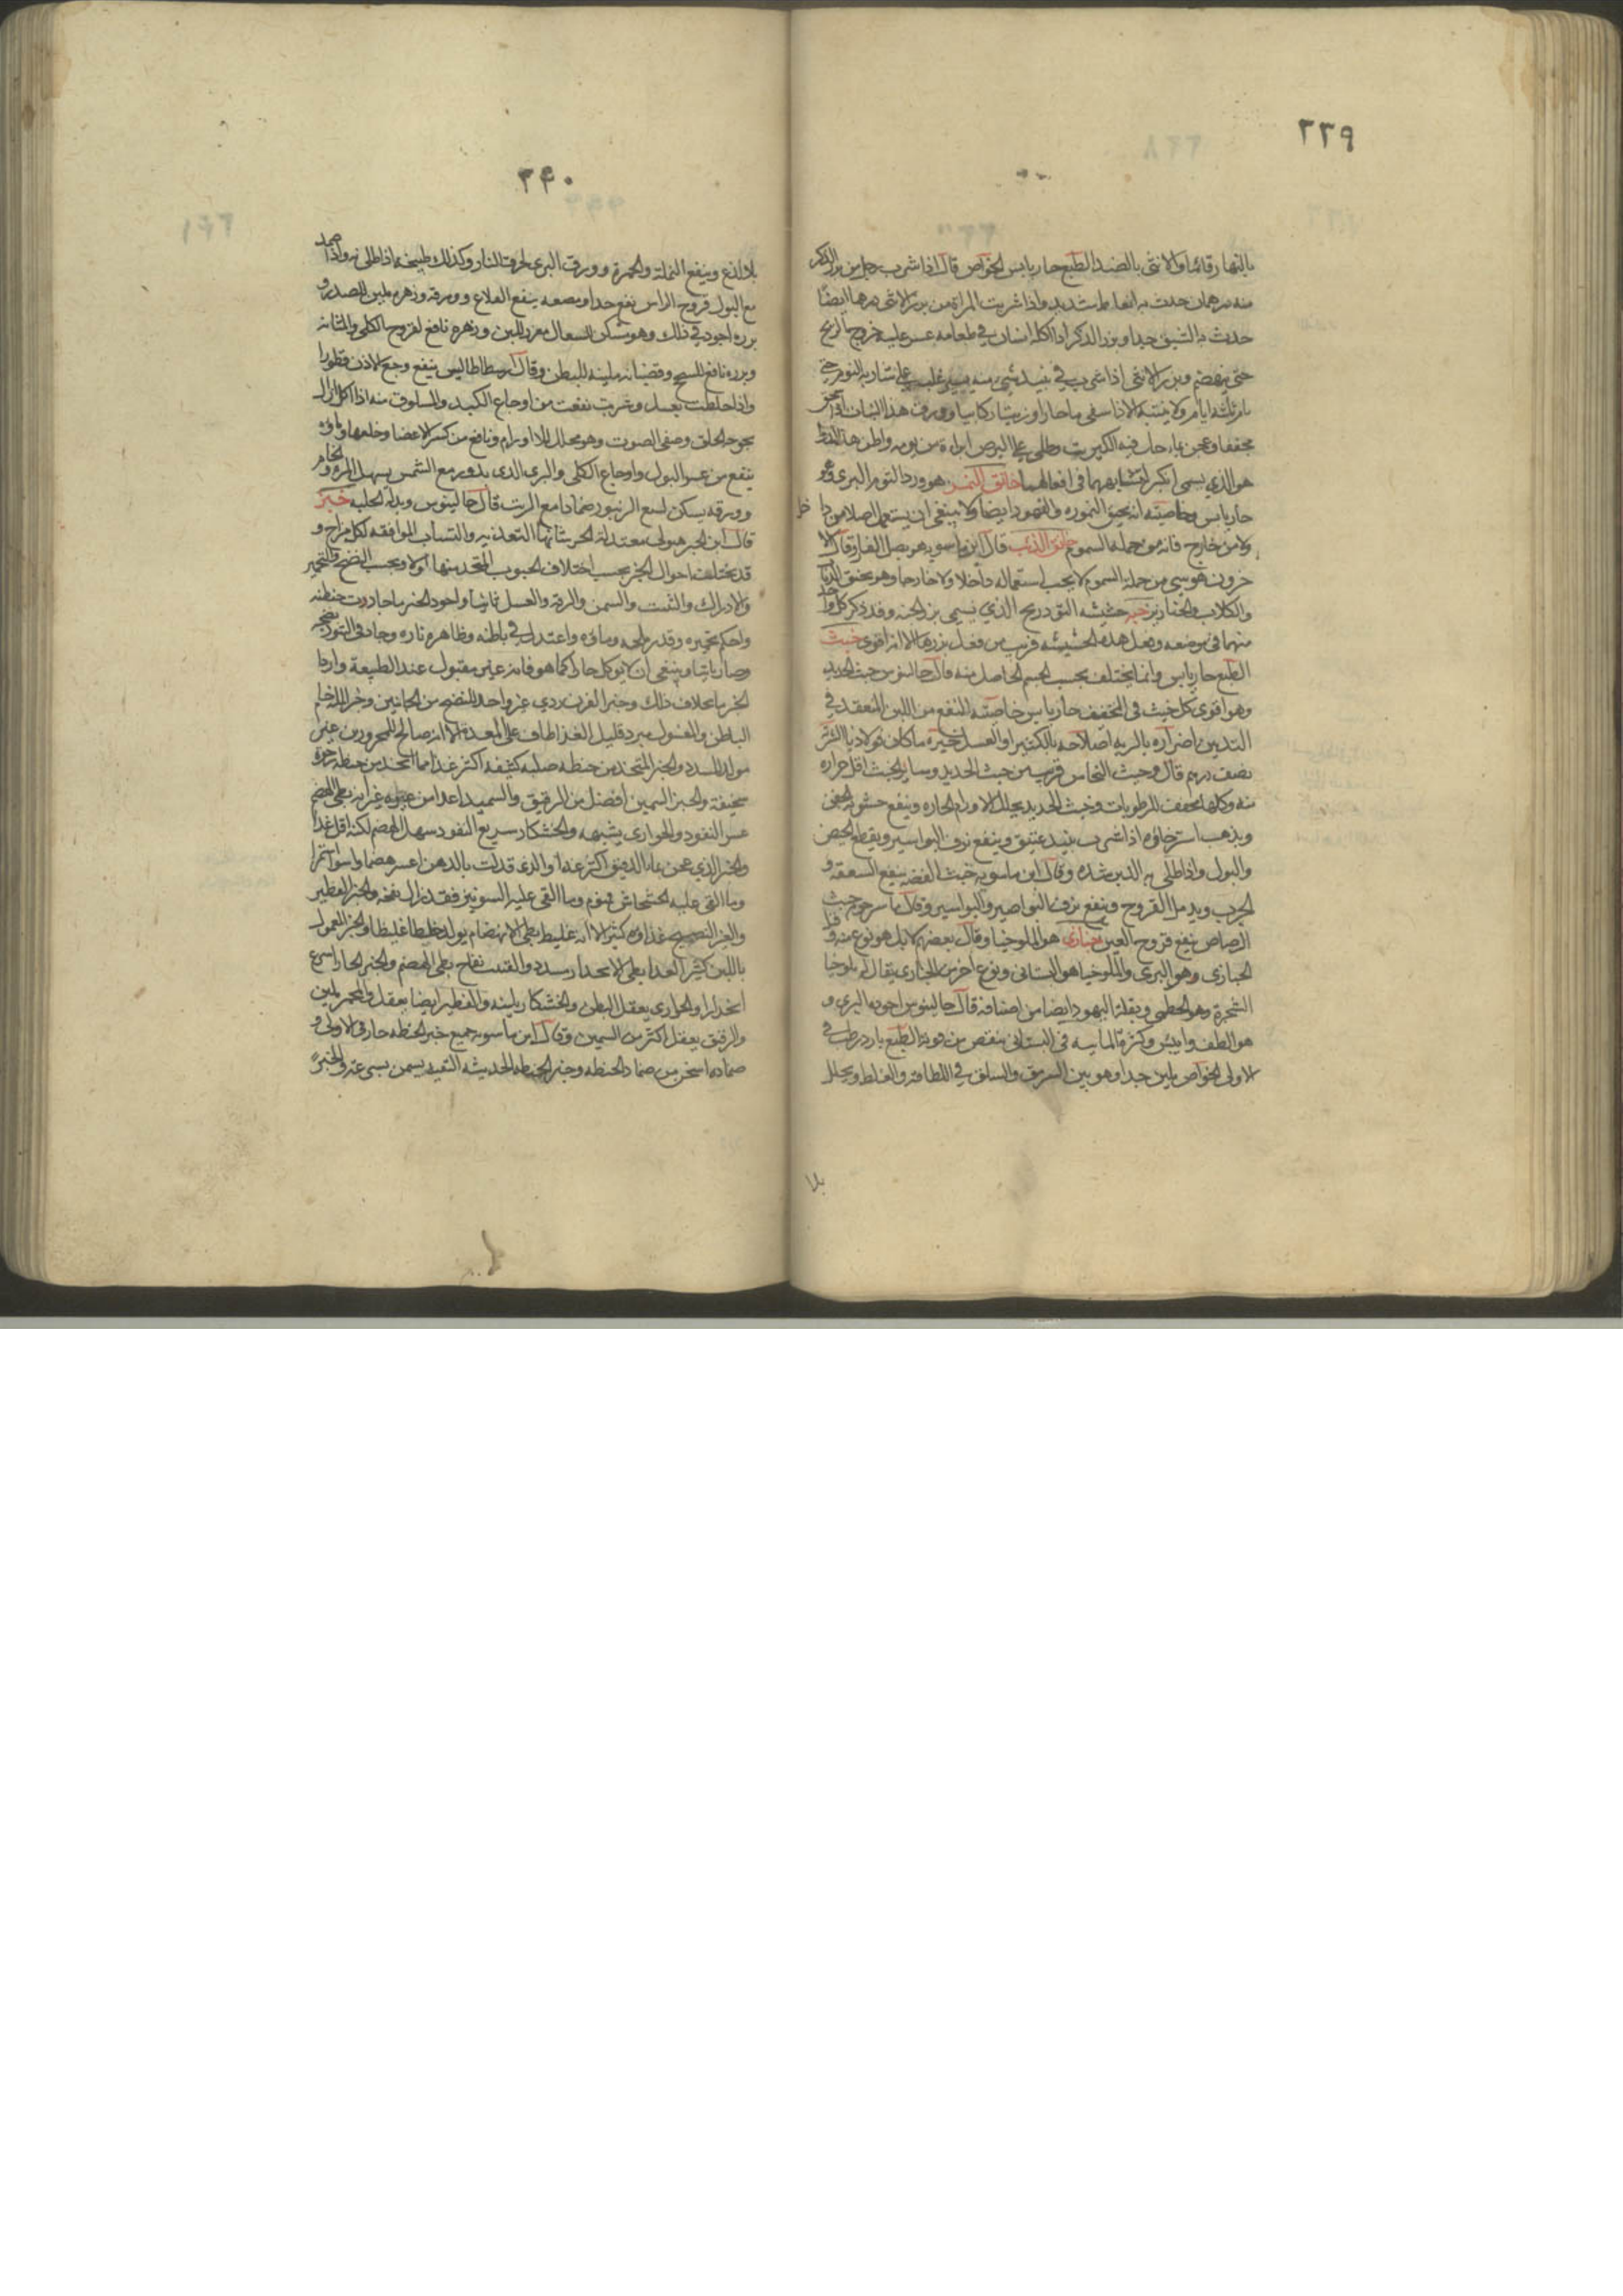 ٢٣٩
بالنهار قائما والانثى بالضد الطبع حار يابس الخواص قال اذا شرب رجل من بزر الذكر
منه درهمان حدث به انعاظ شديد واذا شربت المراة من بزر الانثى درهما ايضا
حدث به الشبق جيدا وبزر الذكر اذا اكله انسان في طعامه عسر عليه خروج الريح
حتى ينهضم وبزر الانثى اذا شرب في نبيذ شي منه يسير غلب على شاربه النوم حتى
نام ثلثة ايام ولا ينتبه الا اذا سقي ماء حارا وزيتا ركابيا وورق هذا النبات اذا
مجففا وعجن بماء حل فيه الكبريت وطلي على البرص ابراه من يومه واظن هذا
هو الذي يسمى انكبر لتشابههما في افعالهما خانق النمر هو ورد التوم البري وهو
حار يابس وخاصته انه يخنق النمورة والفهود ايضا ولا ينبغي ان يستعمل اصلا من داخل
ولا من خارج فانه من جملة السموم خانق الذئب قال ابن ماسويه هو بصل الفار وقال ا
خرون هو شي من جملة السموم لا يجب استعماله داخلا ولا خارجا وهو يخنق الذياب
والكلاب والخنازير حشيشة التودريج الذي يسمى بزر الخبه وقد ذكر كل واحد
منهما في موضعه وفعل هذه الحشيشه قريب من فعل بزرها الا انه اقوى خبث
الطبع حار يابس وانما يختلف بحسب الجسم الحاصل منه قال جالينوس خبث الحديد
وهو اقوى كل خبث في التجفيف حار يابس خاصته النفع من اللبن المنعقد في
الثديين اضراره بالريه اصلاحه بالكثيرا والعسل خيره ما كان فولاذيا الشربة
نصف درهم قال وخبث النحاس قريب من خبث الحديد وساير الخبث اقل حراره
منه وكلها تجفف الرطوبات وخبث الحديد يحلل الاورام الحاره وينفع خشونة الجفن
ويذهب استرخاؤه اذا شرب بنبيذ عتيق وينفع نزف البواسير ويقطع الحيض
والبول واذا طلي به الدبر شده وقال ابن ماسويه خبث الفضه ينفع السعفة و
الجرب ويدمل القروح وينفع نزف النواصير والبواسير وقال ماسرجويه خبث
الرصاص ينفع قروح العين خبازى هو الملوخيا وقال بعضهم لا بل هو نوع منه
الخبازى وهو البري والملوخيا هو البستاني ونوع اخر من الخبازى يقال له ملوخيا
الشجرة وهو الخطمي وبقلة اليهود ايضا من اصنافه قال جالينوس اجوده البري و
هو الطف وايبس وكثرة المائيه في البستاني تنقص من قوته الطبع بارد رطب في
الاولى الخواص يلين جيدا وهو بين السرمق والسلق في اللطافة والغلظ ويحلل
بلا
٢٤٠
بلا لذع وينفع النملة والحمرة وورق البري لحرق النار وكذلك طبيخه اذا طلي به واذا ضمد
مع البول قروح الراس نفع جدا ومضغه ينفع القلاع وورقه وزهره ملين للصدر و
بزره اجود في ذلك وهو مسكن للسعال مغزر للبن وزهره نافع لقروح الكلى والمثانه
وبزره نافع للسحج وقضبانه ملينه للبطن وقال ارسطاطاليس ينفع وجع الاذن قطورا
واذا خلطت بعسل وشربت نفعت من اوجاع الكبد والمسلوق منه اذا اكل ازال
بحوحة الحلق وصفى الصوت وهو محلل للاورام ونافع من كسر الاعضا وخلعها وماؤه
ينفع من عسر البول واوجاع الكلى والبري الذي يدور مع الشمس يسهل المره والخام
وورقه يسكن لسع الزنبور ضمادا مع الزيت قال جالينوس وبدله الحلبه خبز
قال ابن الجبر هبولى معتدلة الحر شانها التغذيه والتساب الموافقه لكل مزاج و
قد تختلف احوال الخبز بحسب اختلاف الحبوب المتخذ منها اولا وبحسب النضج والتخمير
والادراك والتثبت والسمن والرقة والعسل ثانيا واجود الخبز ما جادت حنطته
واحكم تخميره وقدر ملحه وماؤه واعتدل في باطنه وظاهره ناره وجاد في التنور نضجه
وصار بايتا وينبغي ان لا يوكل حارا كما هو فانه غير مقبول عند الطبيعة واردا
الخبز ما بخلاف ذلك وخبز الفرن ردي غير واحد النضج من الجانبين وخبز المله خام
الباطن والمغسول مبرد قليل الغذا طاف على المعدة الا انه صالح للمحرورين غير
مولد للسدد والخبز المتخذ من حنطه صلبه كثيفه اكثر غذا مما اتخذ من حنطه رخوة
سخيفة والخبز السمين افضل من الرقيق والسميد اغذا من غيره غير انه بطي الهضم
عسر النفود والحوارى يشبهه والخشكار سريع النفود سهل الهضم لكنه اقل غذا
والخبز الذي عجن بماء الدقيق اكثر غذا والذي قد لت بالدهن اعسر هضما واسوا استمرا
وما القي عليه الخشخاش منوم وما القي عليه الشونيز فقد زال نفخه والخبز الفطير
والغير النضيج غذاوه كثير الا انه غليظ بطي الانهضام يولد خلطا غليظا والخبز المعمول
باللبن كثير الغذا بطي الانحدار مسدد والفتيت نفاخ بطي الهضم والخبز الحار اسرع
انحدارا والحوارى يعقل البطن والخشكار يلينه والفطير ايضا يعقل والمخمر يلين
والرقيق يعقل اكثر من السمين وقال ابن ماسويه جميع خبز الحنطه حار في الاولى و
ضمادها اسخن من ضماد الحنطه وخبز الحنطه الحديثه التعبيد يسمن بسرعة والخبز